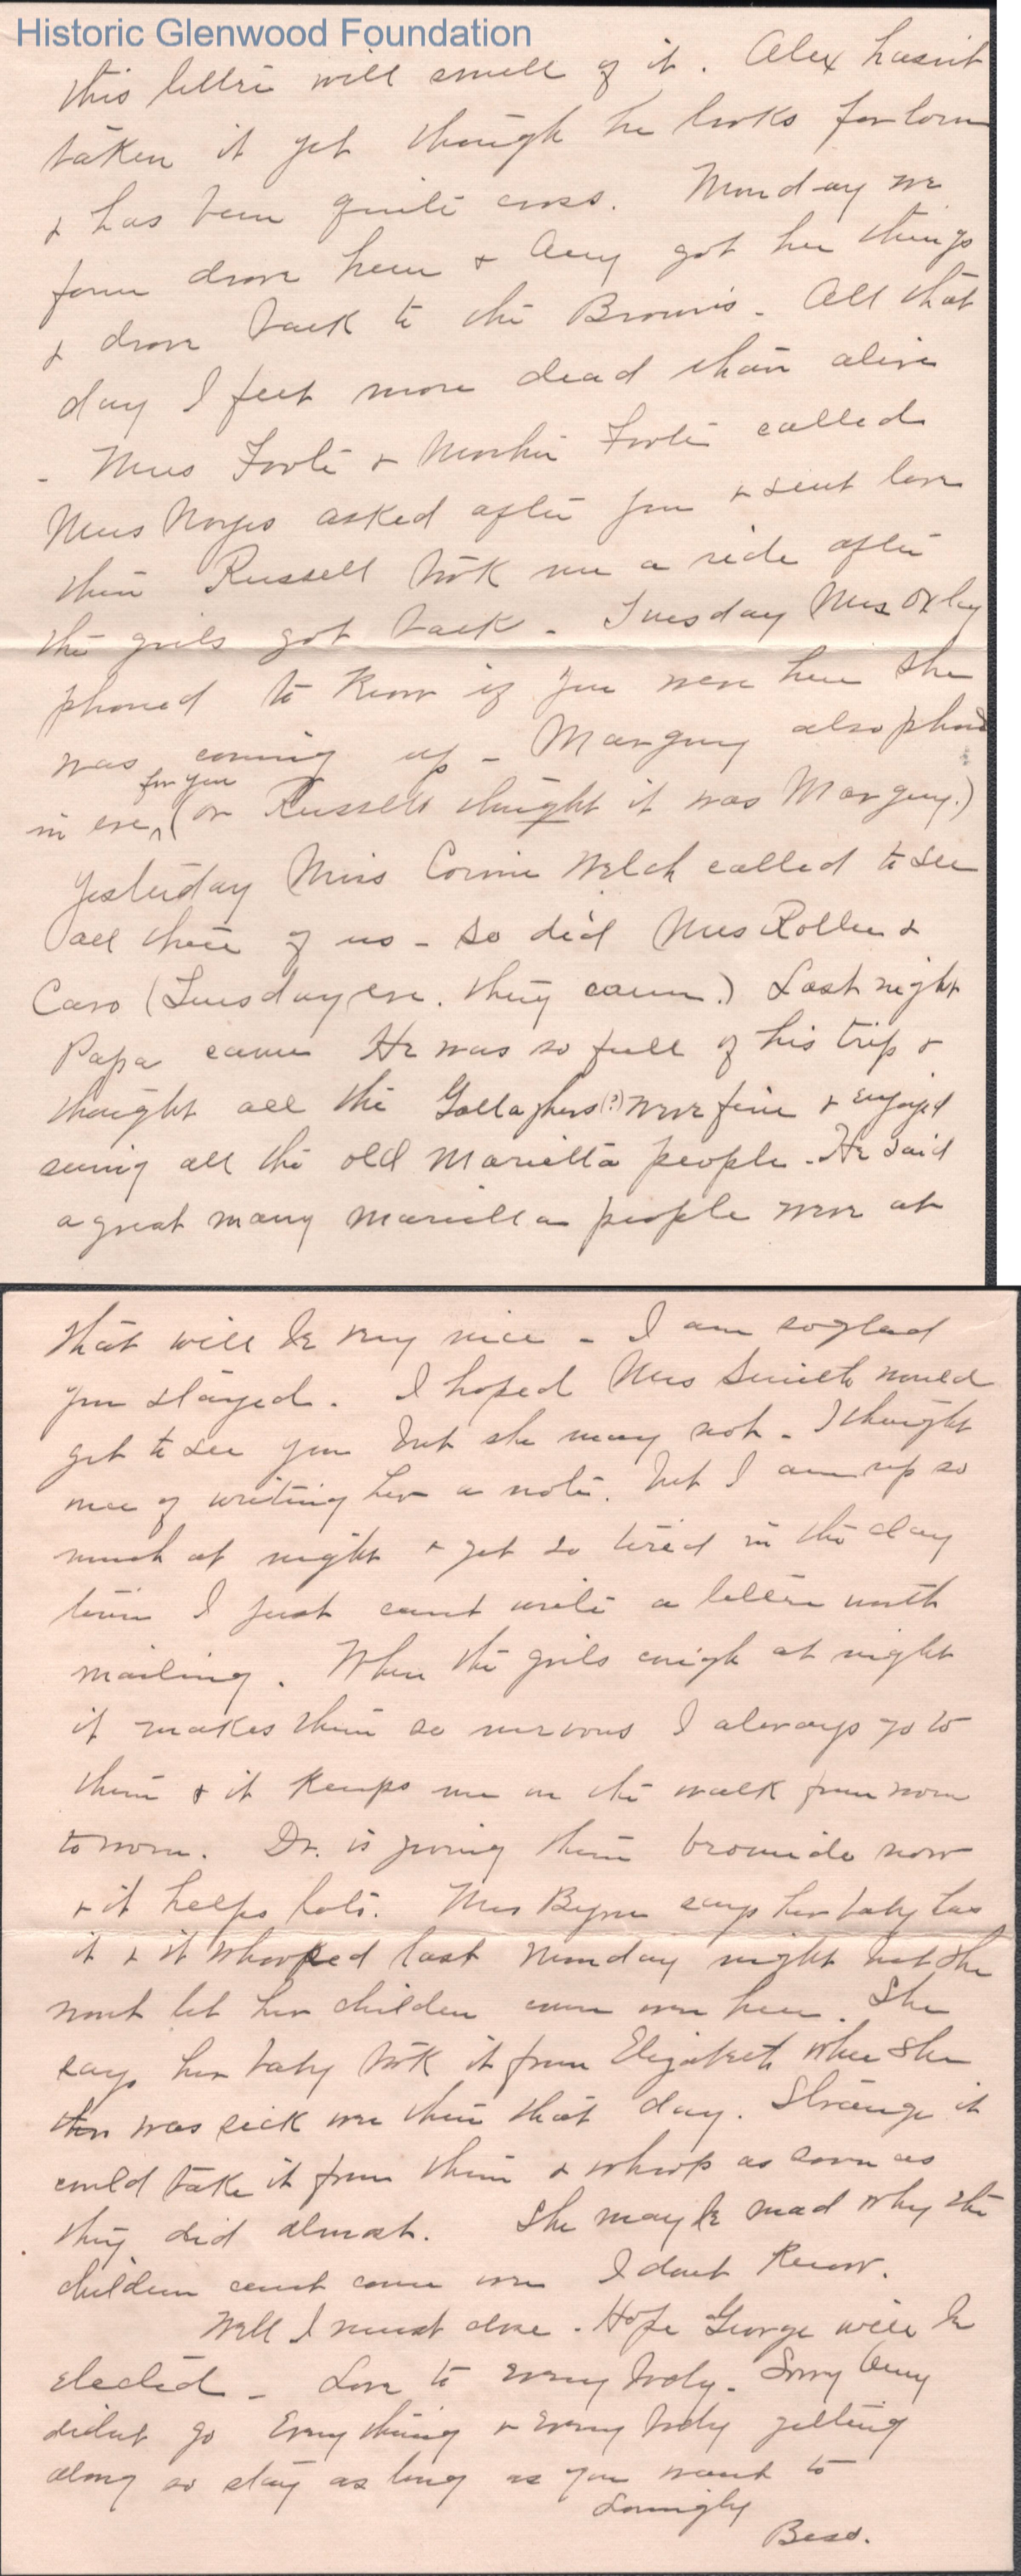 Historic Glenwood Foundation
this letter will smell of it. Alex hasn't
taken it yet though he looks forlorn
& has been quite cross. Monday we
four drove here & Amy got her things
& drove back to the Brown's. All that
day I felt more dead than alive
- Mrs Foote & Foote called
Mrs Noyes asked after you & sent love
then Russell took me a ride after
the girls got back - Tuesday Mrs Oxley
phoned to know if you were here she
was coming up - Marguy also phoned
for you
in eve, (or Russell thought it was Marguy.)
Yesterday Miss Corinne Welch called to see
all three of us - so did Mrs Rollin &
Caro (Tuesday eve. they came.) Last night
Papa came He was so full of his trip &
thought all the Gallaghers(?) were fine & enjoyed
seeing all the old Marietta people. He said
a great many Marietta people were at
that will be very nice - I am so glad
you stayed. I hoped Mrs Smith would
get to see you but she may not - I thought
once of writing her a note. but I am up so
much at night & get so tired in the day
time I just can't write a letter worth
mailing. When the girls cough at night
it makes them so nervous I always go to
them & it keeps me on the walk from room
to room. Dr. is giving them bromide now
& it helps lots. Mrs Byrne says her baby has
it & it whooped last Monday night but she
wont let her children come over here. She
says her baby took it from Elizabeth when she
was sick over there that day. Strange it
could take it from them & whoop as soon as
they did almost. She may be mad why the
children cant come over I dont know.
Well I must close. Hope George will be
elected - Love to every body. Sorry Amy
didn't go Every thing & every body getting
along so stay as long as you want to
Lovingly
Bess.